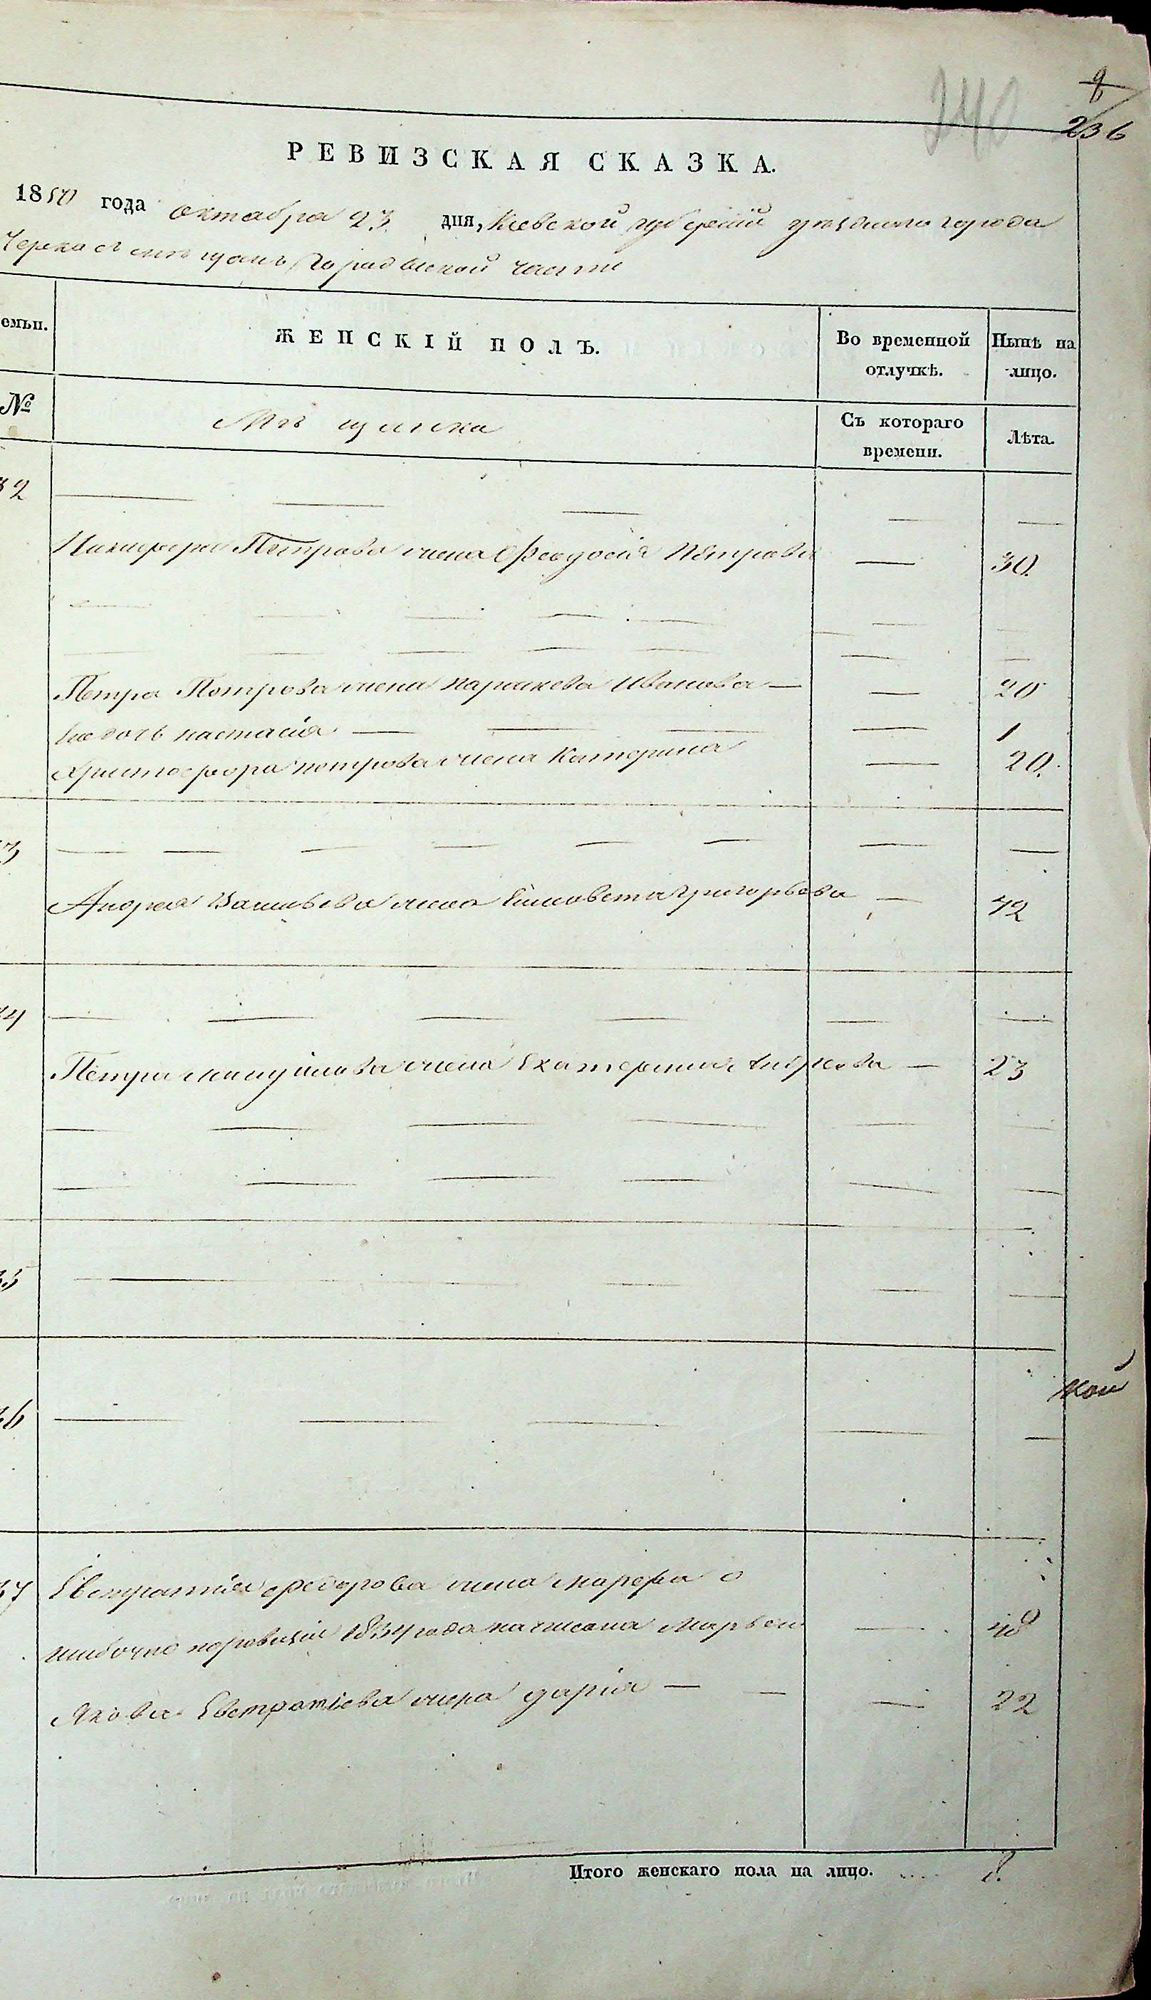 240
236
РЕВИЗСКАЯ СКАЗКА.
1850 года октября 23 дня, Кіевской губерніи уѣзднаго города
Черкасъ мѣщанъ городской части
емьи. ЖЕНСКІЙ ПОЛЪ. Во временной отлучкѣ. Нынѣ на лицо.
№ Мѣщанка Съ котораго времени. Лѣта.
32
Никифора Петрова жена Феодосія Петрова — 30.
Петра Петрова жена Параскева Иванова — — 20
дочь настасія — — 1
Христофора петрова жена Катерина — 20.
33
Андрея Васильева жена Елисавета григорьева — 42
34
Петра жена Екатерина — 23
35
36
кой
37 Евстратія федорова жена марфа о
шибочно поревизіи 1834 года написана Марьею — 48
Якова Евстратіева жена дарія — — — 22
Итого женскаго пола на лицо. 8.